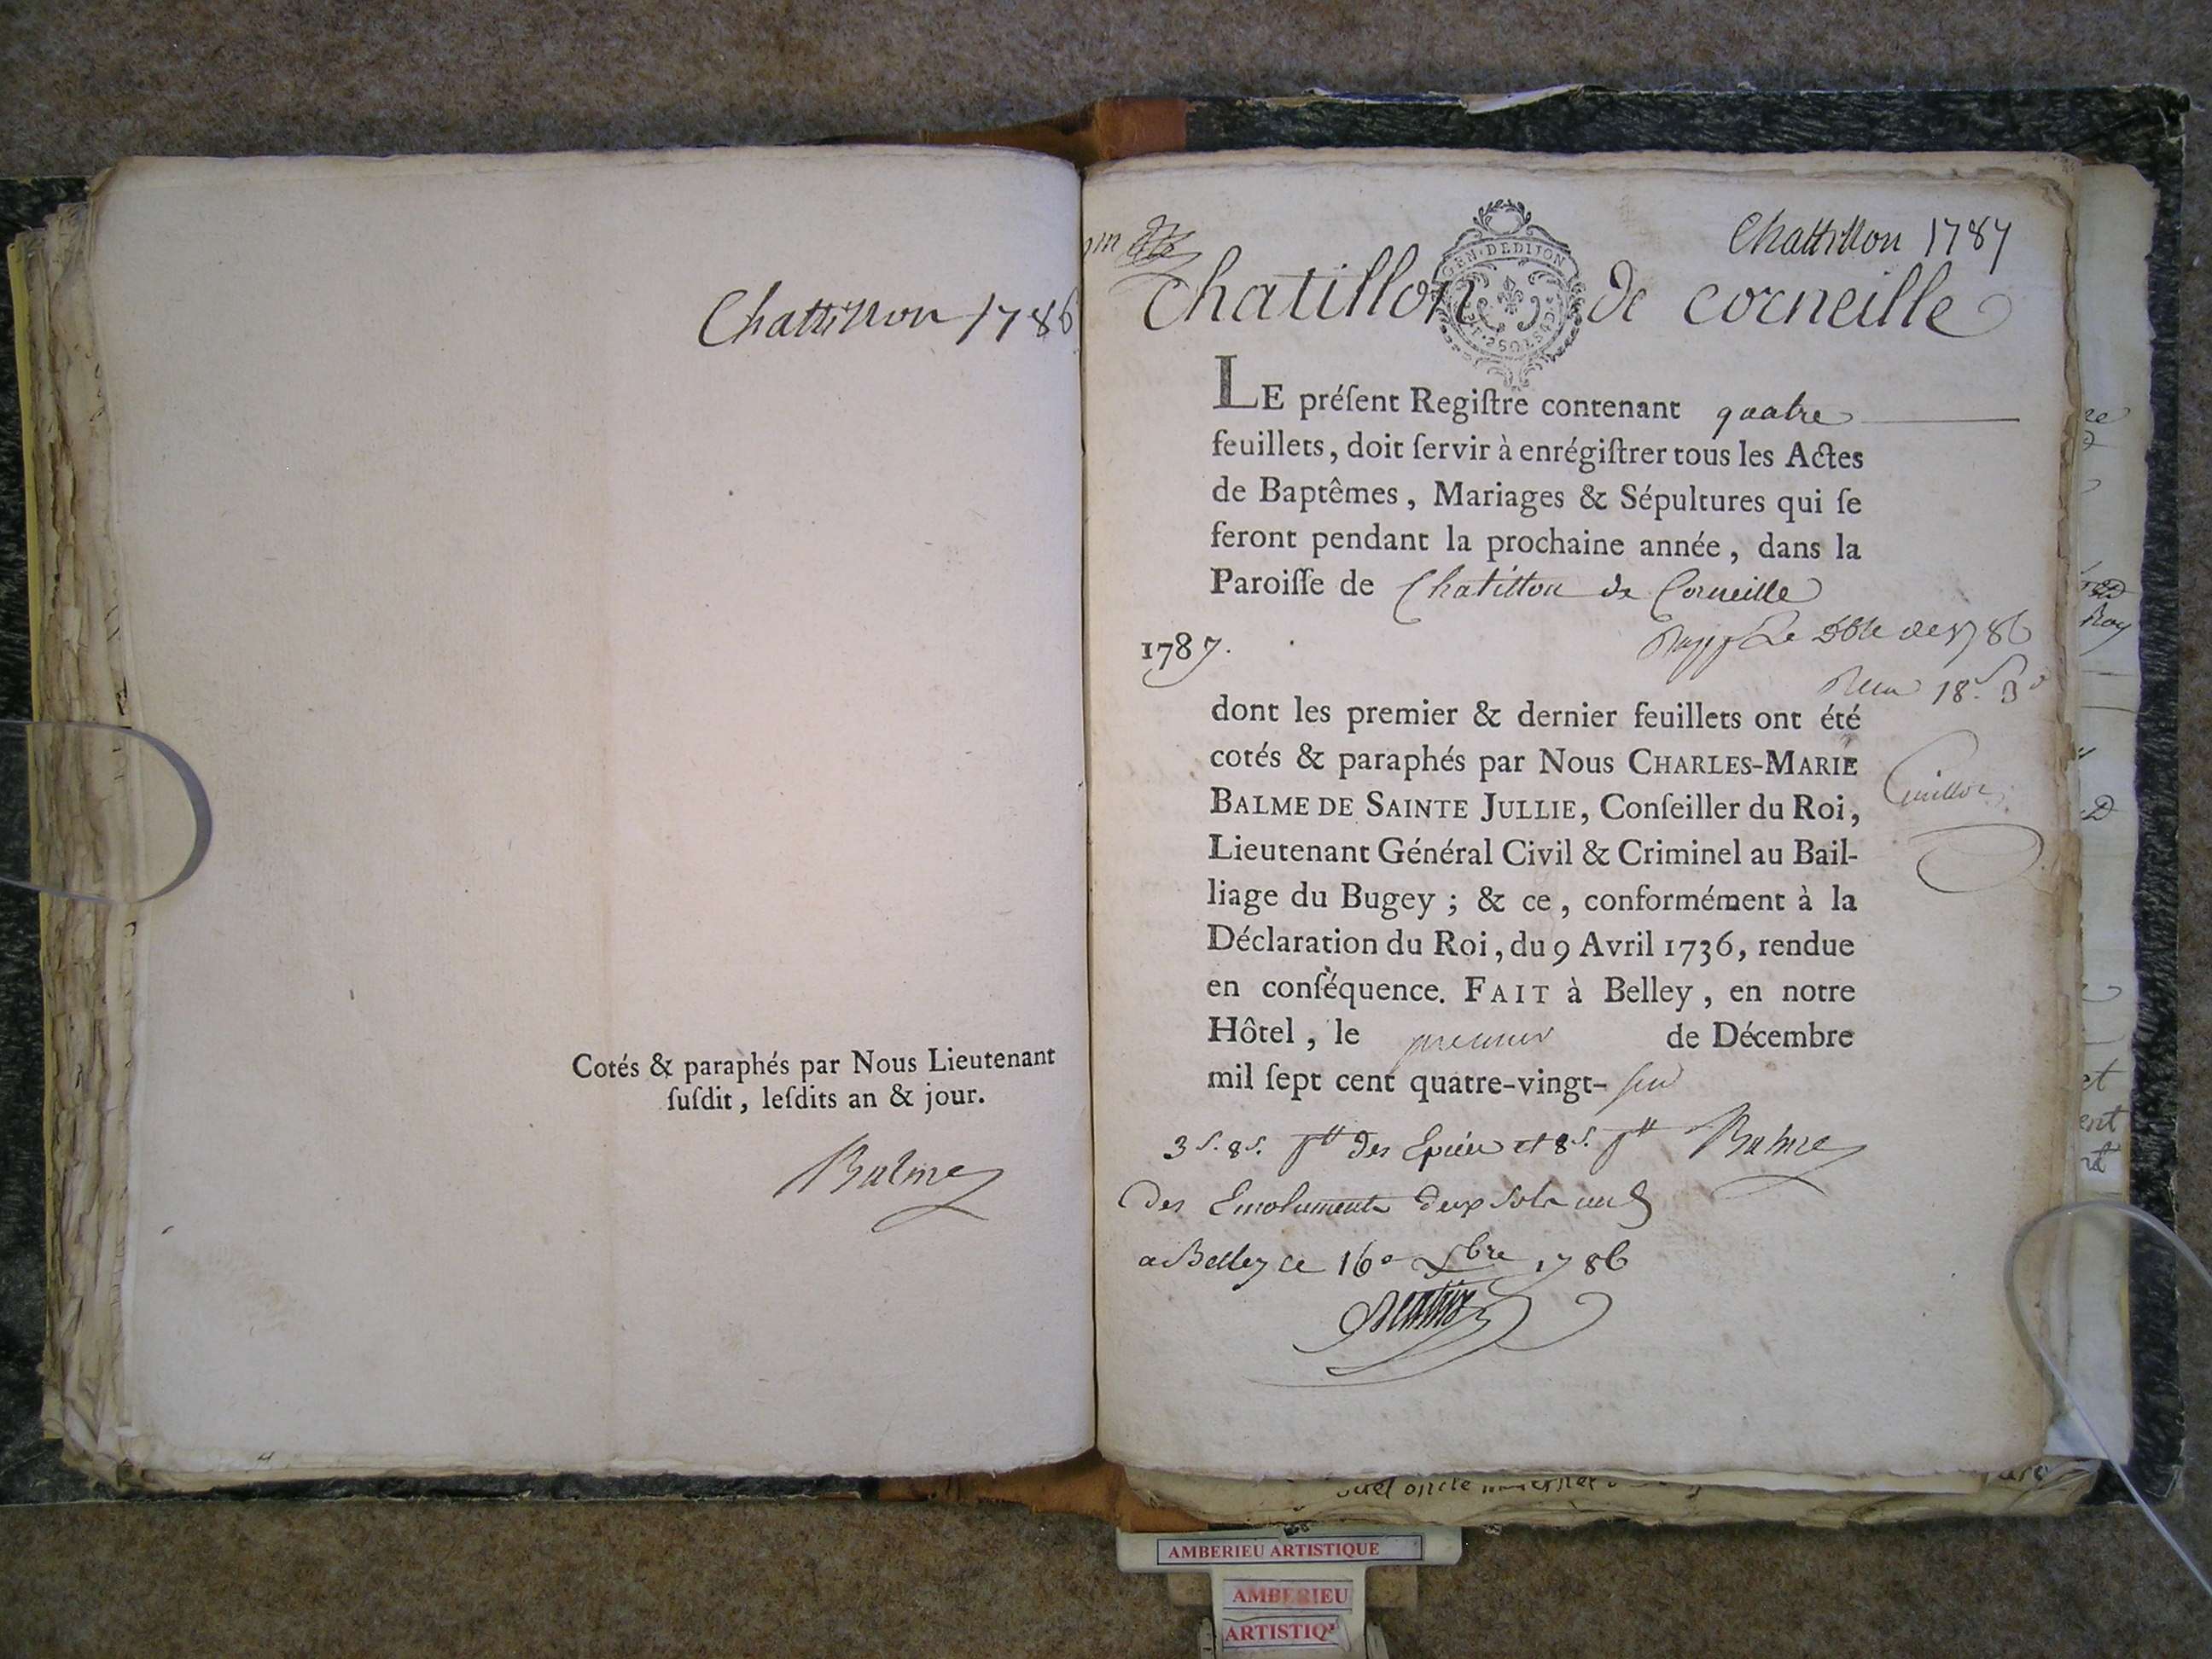 Chattillon 1786
Cotés & paraphés par Nous Lieutenant
ſuſdit, leſdits an & jour.
Balme
Chattillon 1787
GEN·DEDIJON
chatillon de corneille
LE préſent Regiſtre contenant quatre
feuillets, doit ſervir à enrégiſtrer tous les Actes
de Baptêmes, Mariages & Sépultures qui ſe
feront pendant la prochaine année, dans la
Paroiſſe de Chatillon de Corneille
1787.
Le de 1786
18ˢ
dont les premier & dernier feuillets ont été
cotés & paraphés par Nous CHARLES-MARIE
BALME DE SAINTE JULLIE, Conſeiller du Roi,
Lieutenant Général Civil & Criminel au Bail-
liage du Bugey ; & ce, conformément à la
Déclaration du Roi, du 9 Avril 1736, rendue
en conſéquence. FAIT à Belley, en notre
Hôtel, le premier de Décembre
mil ſept cent quatre-vingt-six
3ˢ. 8ᵈ. des Epices et 8ˢ. Balme
des Emolument deux sols
a Belley ce 16e Xbre 1786
AMBERIEU ARTISTIQUE
AMBERIEU
ARTISTIQ